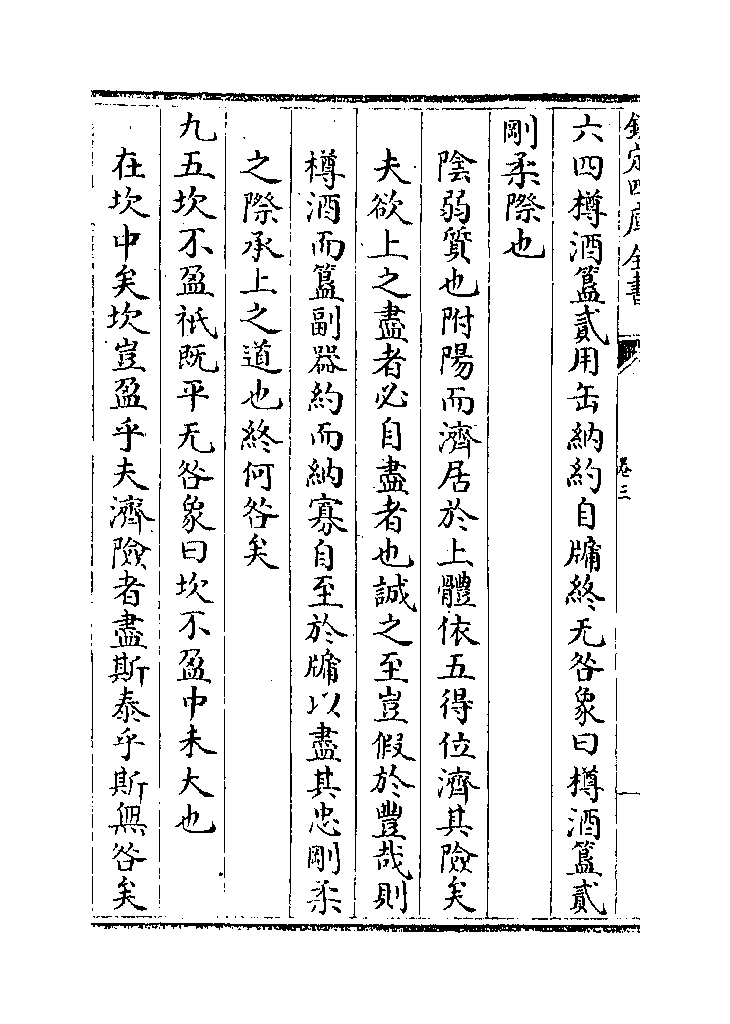 欽定四庫全書
卷三
六四樽酒簋貳用缶納約自牖終无咎象曰樽酒簋貳
剛柔際也
陰弱質也附陽而濟居於上體依五得位濟其險矣
夫欲上之盡者必自盡者也誠之至豈假於豐哉則
樽酒而簋副器約而納寡自至於牖以盡其忠剛柔
之際承上之道也終何咎矣
九五坎不盈祇既平无咎象曰坎不盈中未大也
在坎中矣坎豈盈乎夫濟險者盡斯泰乎斯無咎矣